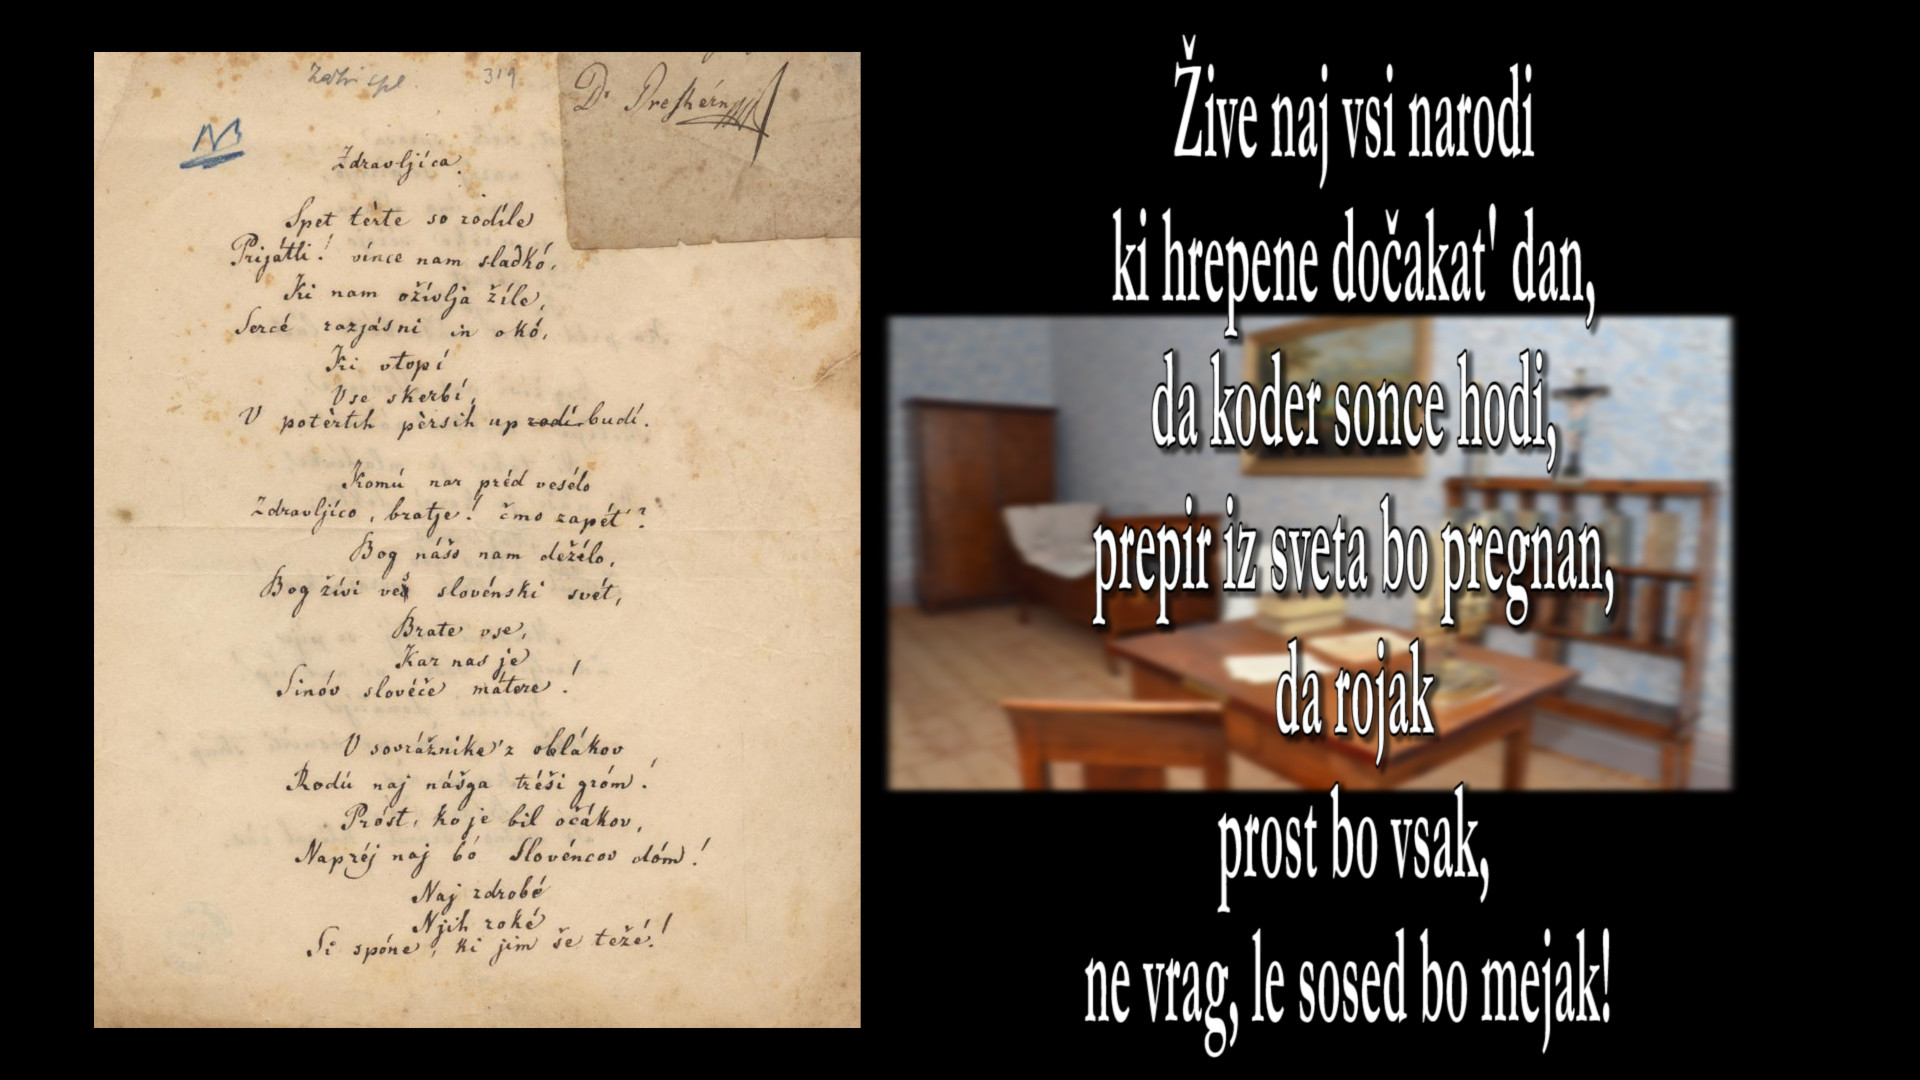 319
NB
Dr Preshérn
Zdravljíca.
Spet tèrte so rodíle
Prijátli! vínce nam sladkó,
Ki nam ožívlja žíle,
Sercé razjásni in okó,
Ki vtopí
Vse skerbí,
V potèrtih pèrsih up rodí budí.
Komú nar préd vesélo
Zdravljíco, bratje! čmo zapét'?
Bog nášo nam dežélo,
Bog žívi ves slovénski svét,
Brate vse,
Kar nas je
Sinóv slovéče mátere!
V sovrážnike 'z oblákov
Rodú naj nášga tréši gróm!
Próst, ko je bil očákov,
Napréj naj bó Slovéncov dóm!
Naj zdrobé
Njih roké
Si spóne, ki jim še težé!
Žive naj vsi narodi
ki hrepene dočakat' dan,
da koder sonce hodi,
prepir iz sveta bo pregnan,
da rojak
prost bo vsak,
ne vrag, le sosed bo mejak!